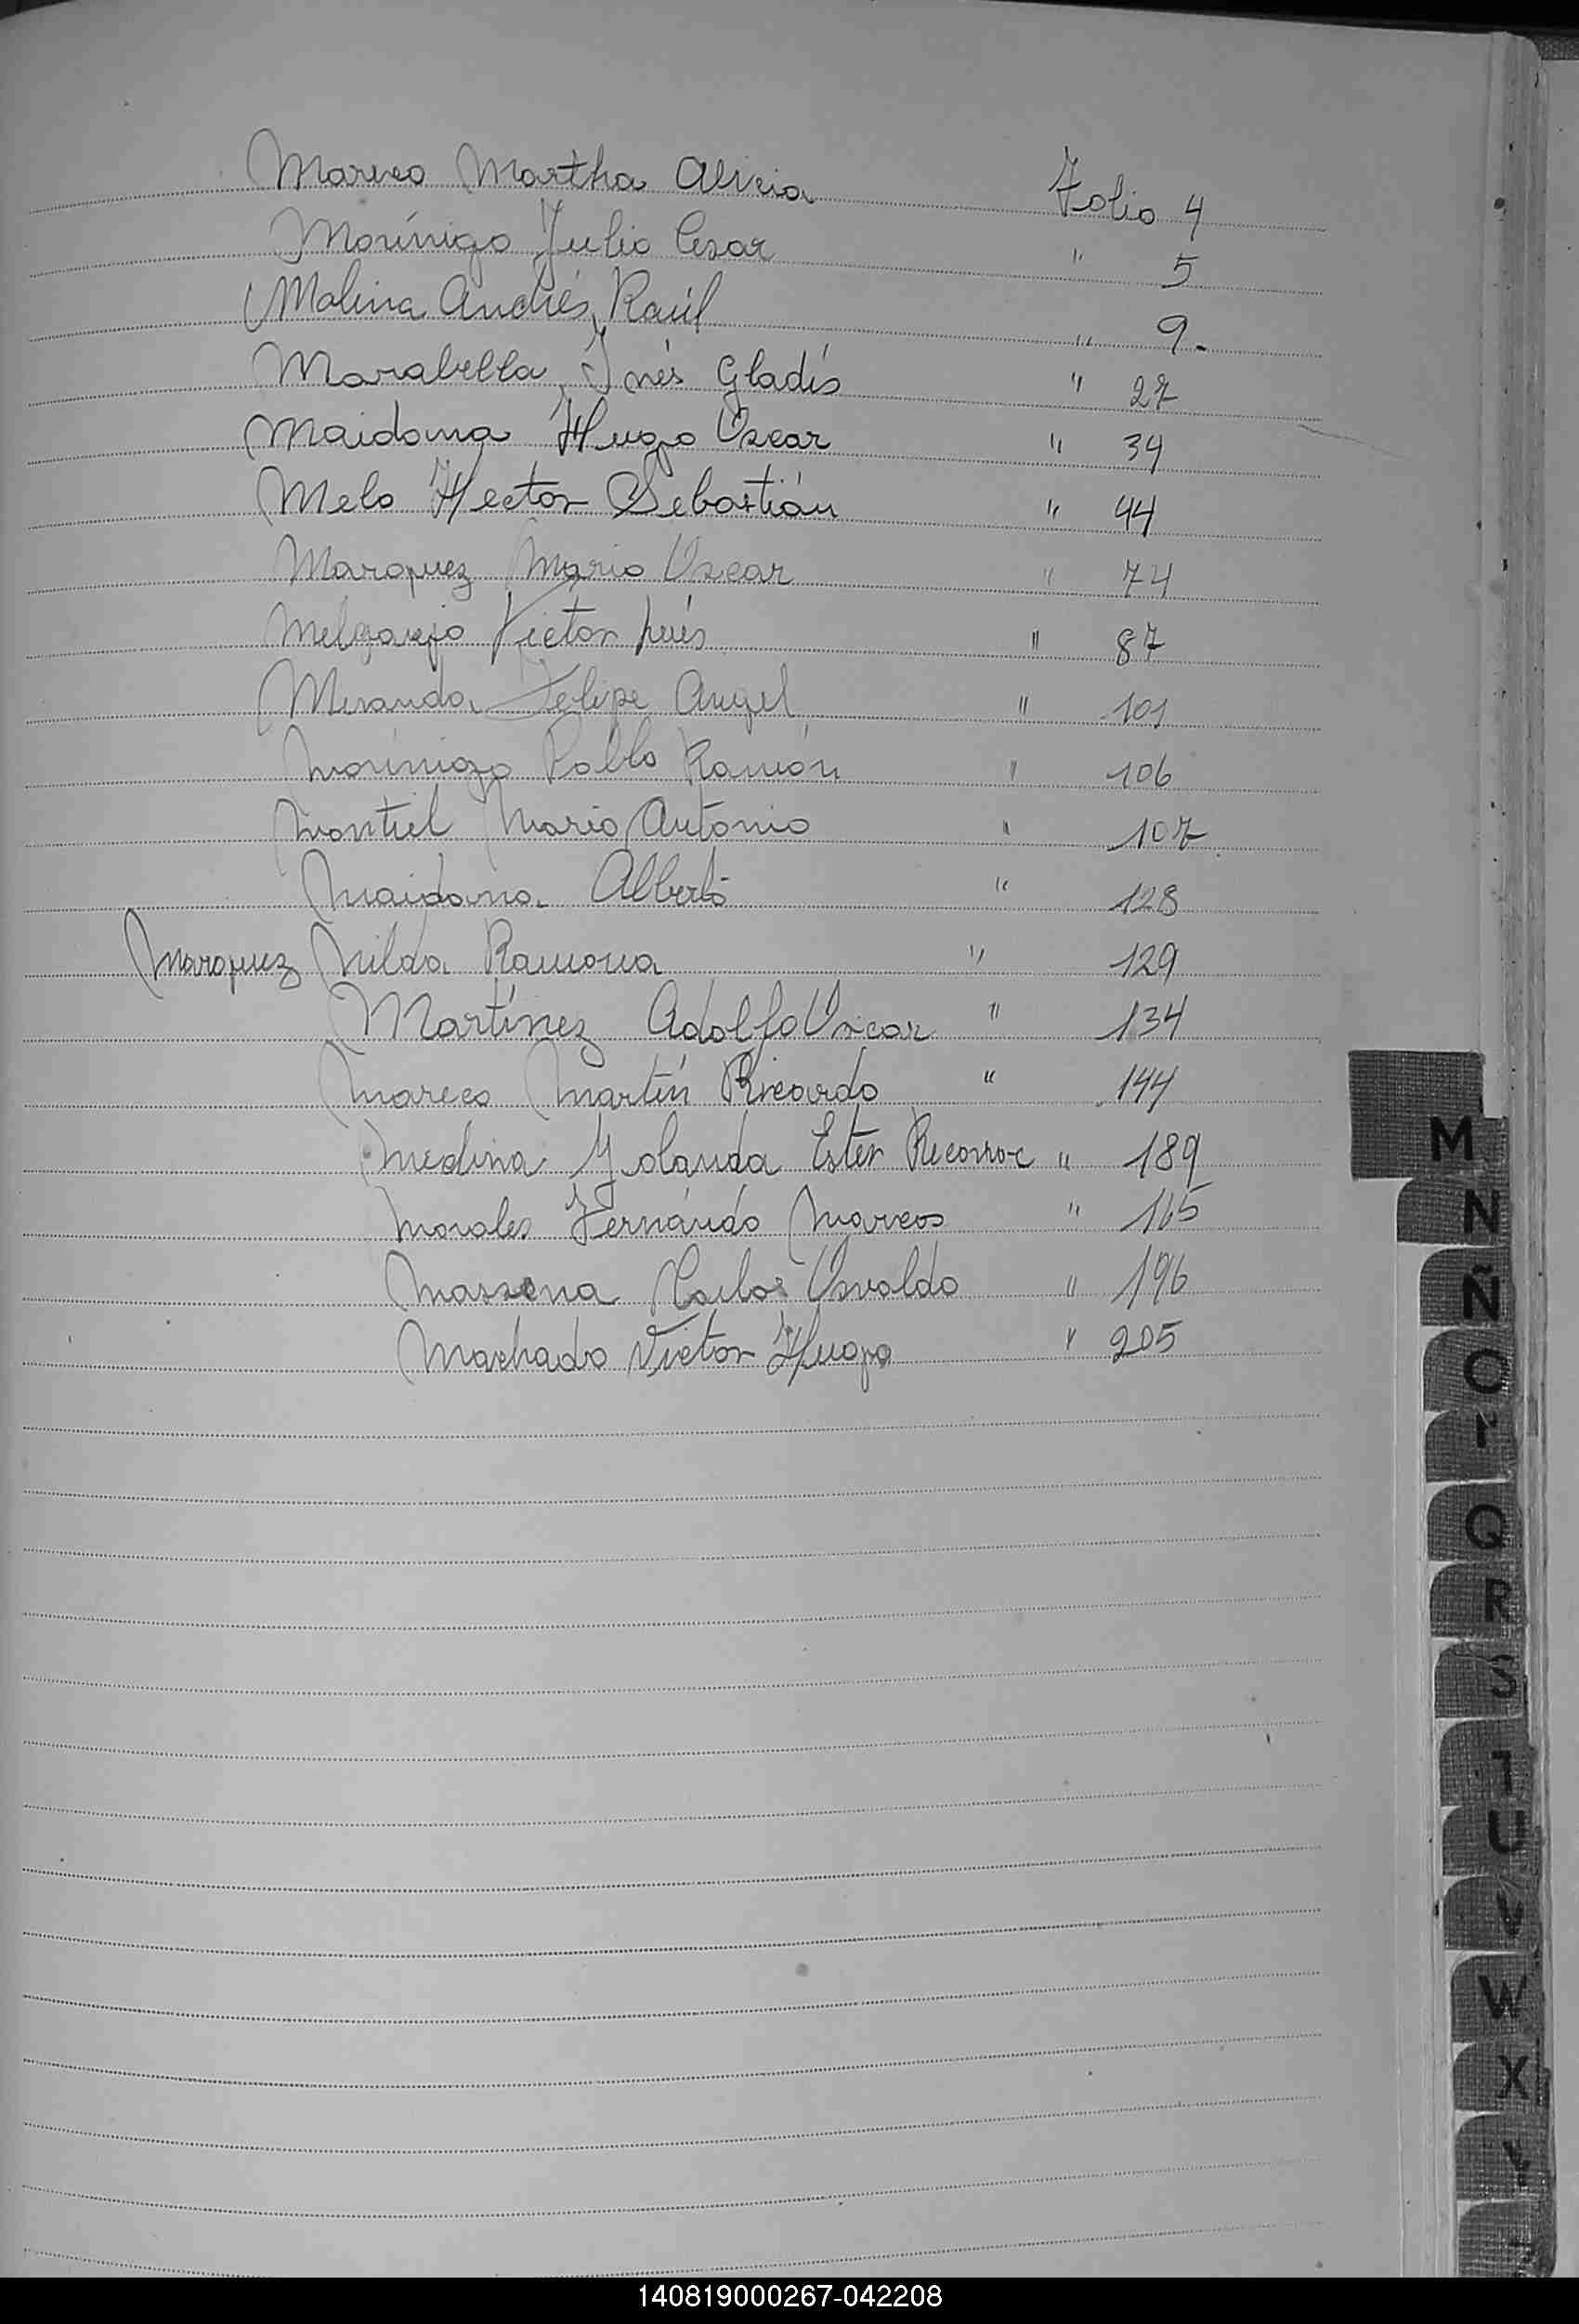 Mareco Martha Alicia Folio 4
Morínigo Julio Cesar " 5
Molina Andrés Raúl " 9.
Marabella Inés Gladis " 27
Maidana Hugo Oscar " 34
Melo Hector Sebastián " 44
Marquez Mario Oscar " 74
Melgarejo Victor Luis " 87
Miranda Felipe Angel " 101
Morínigo Pablo Ramón " 106
Montiel Mario Antonio " 107
Maidana Alberto " 128
Marquez Nilda Ramona " 129
Martínez Adolfo Oscar " 134
Mareco Martín Ricardo " 144
Medina Yolanda Ester " 189
Morales Fernando Marcos " 165
Massena Carlos Osvaldo " 196
Machado Victor Hugo " 205
M
N
Ñ
O
Q
R
S
T
U
V
W
X
Y
140819000267-042208